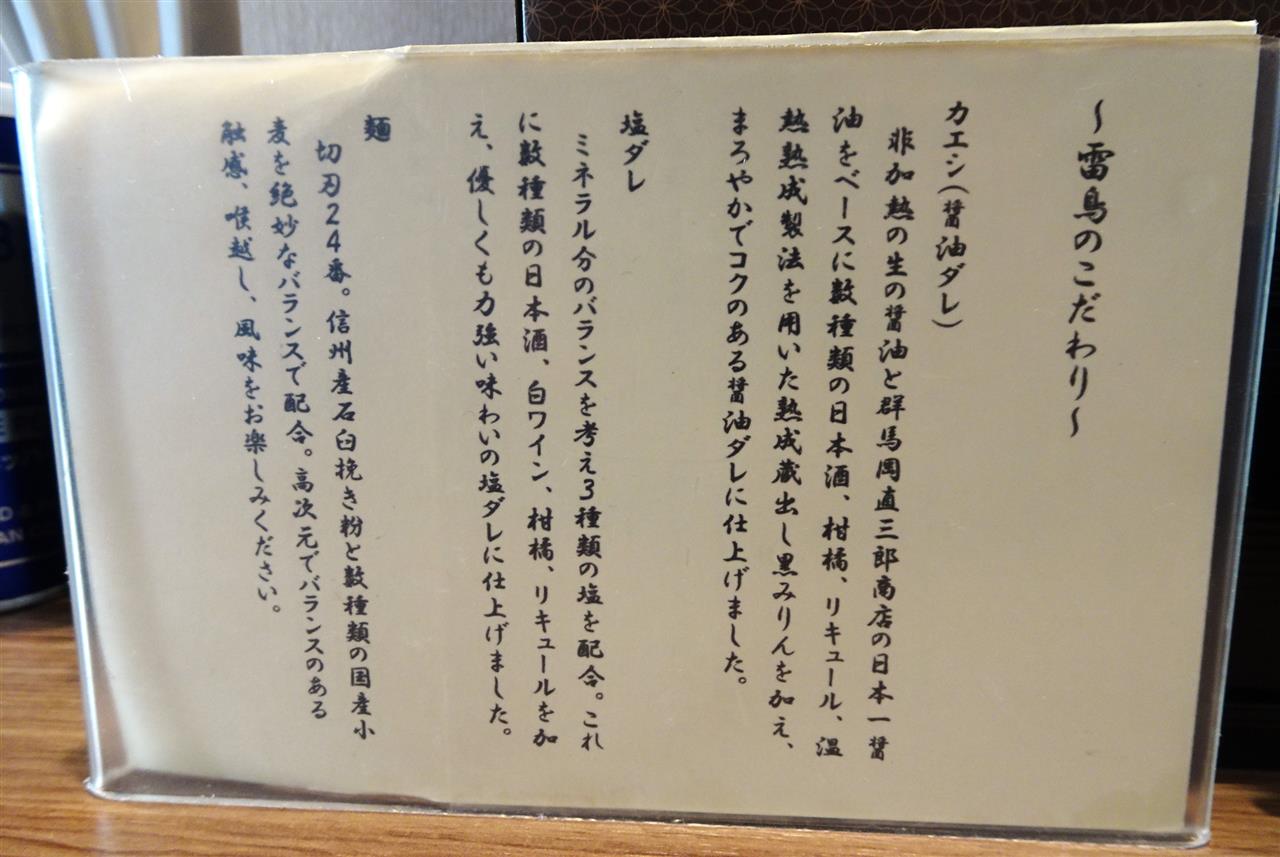 ～雷鳥のこだわり～
カエシ（醤油ダレ）
非加熱の生の醤油と群馬岡直三郎商店の日本一醤
油をベースに数種類の日本酒、柑橘、リキュール、温
熱熟成製法を用いた熟成蔵出し黒みりんを加え、
まろやかでコクのある醤油ダレに仕上げました。
塩ダレ
ミネラル分のバランスを考え3種類の塩を配合。これ
に数種類の日本酒、白ワイン、柑橘、リキュールを加
え、優しくも力強い味わいの塩ダレに仕上げました。
麺
切刃24番。信州産石臼挽き粉と数種類の国産小
麦を絶妙なバランスで配合。高次元でバランスのある
触感、喉越し、風味をお楽しみください。